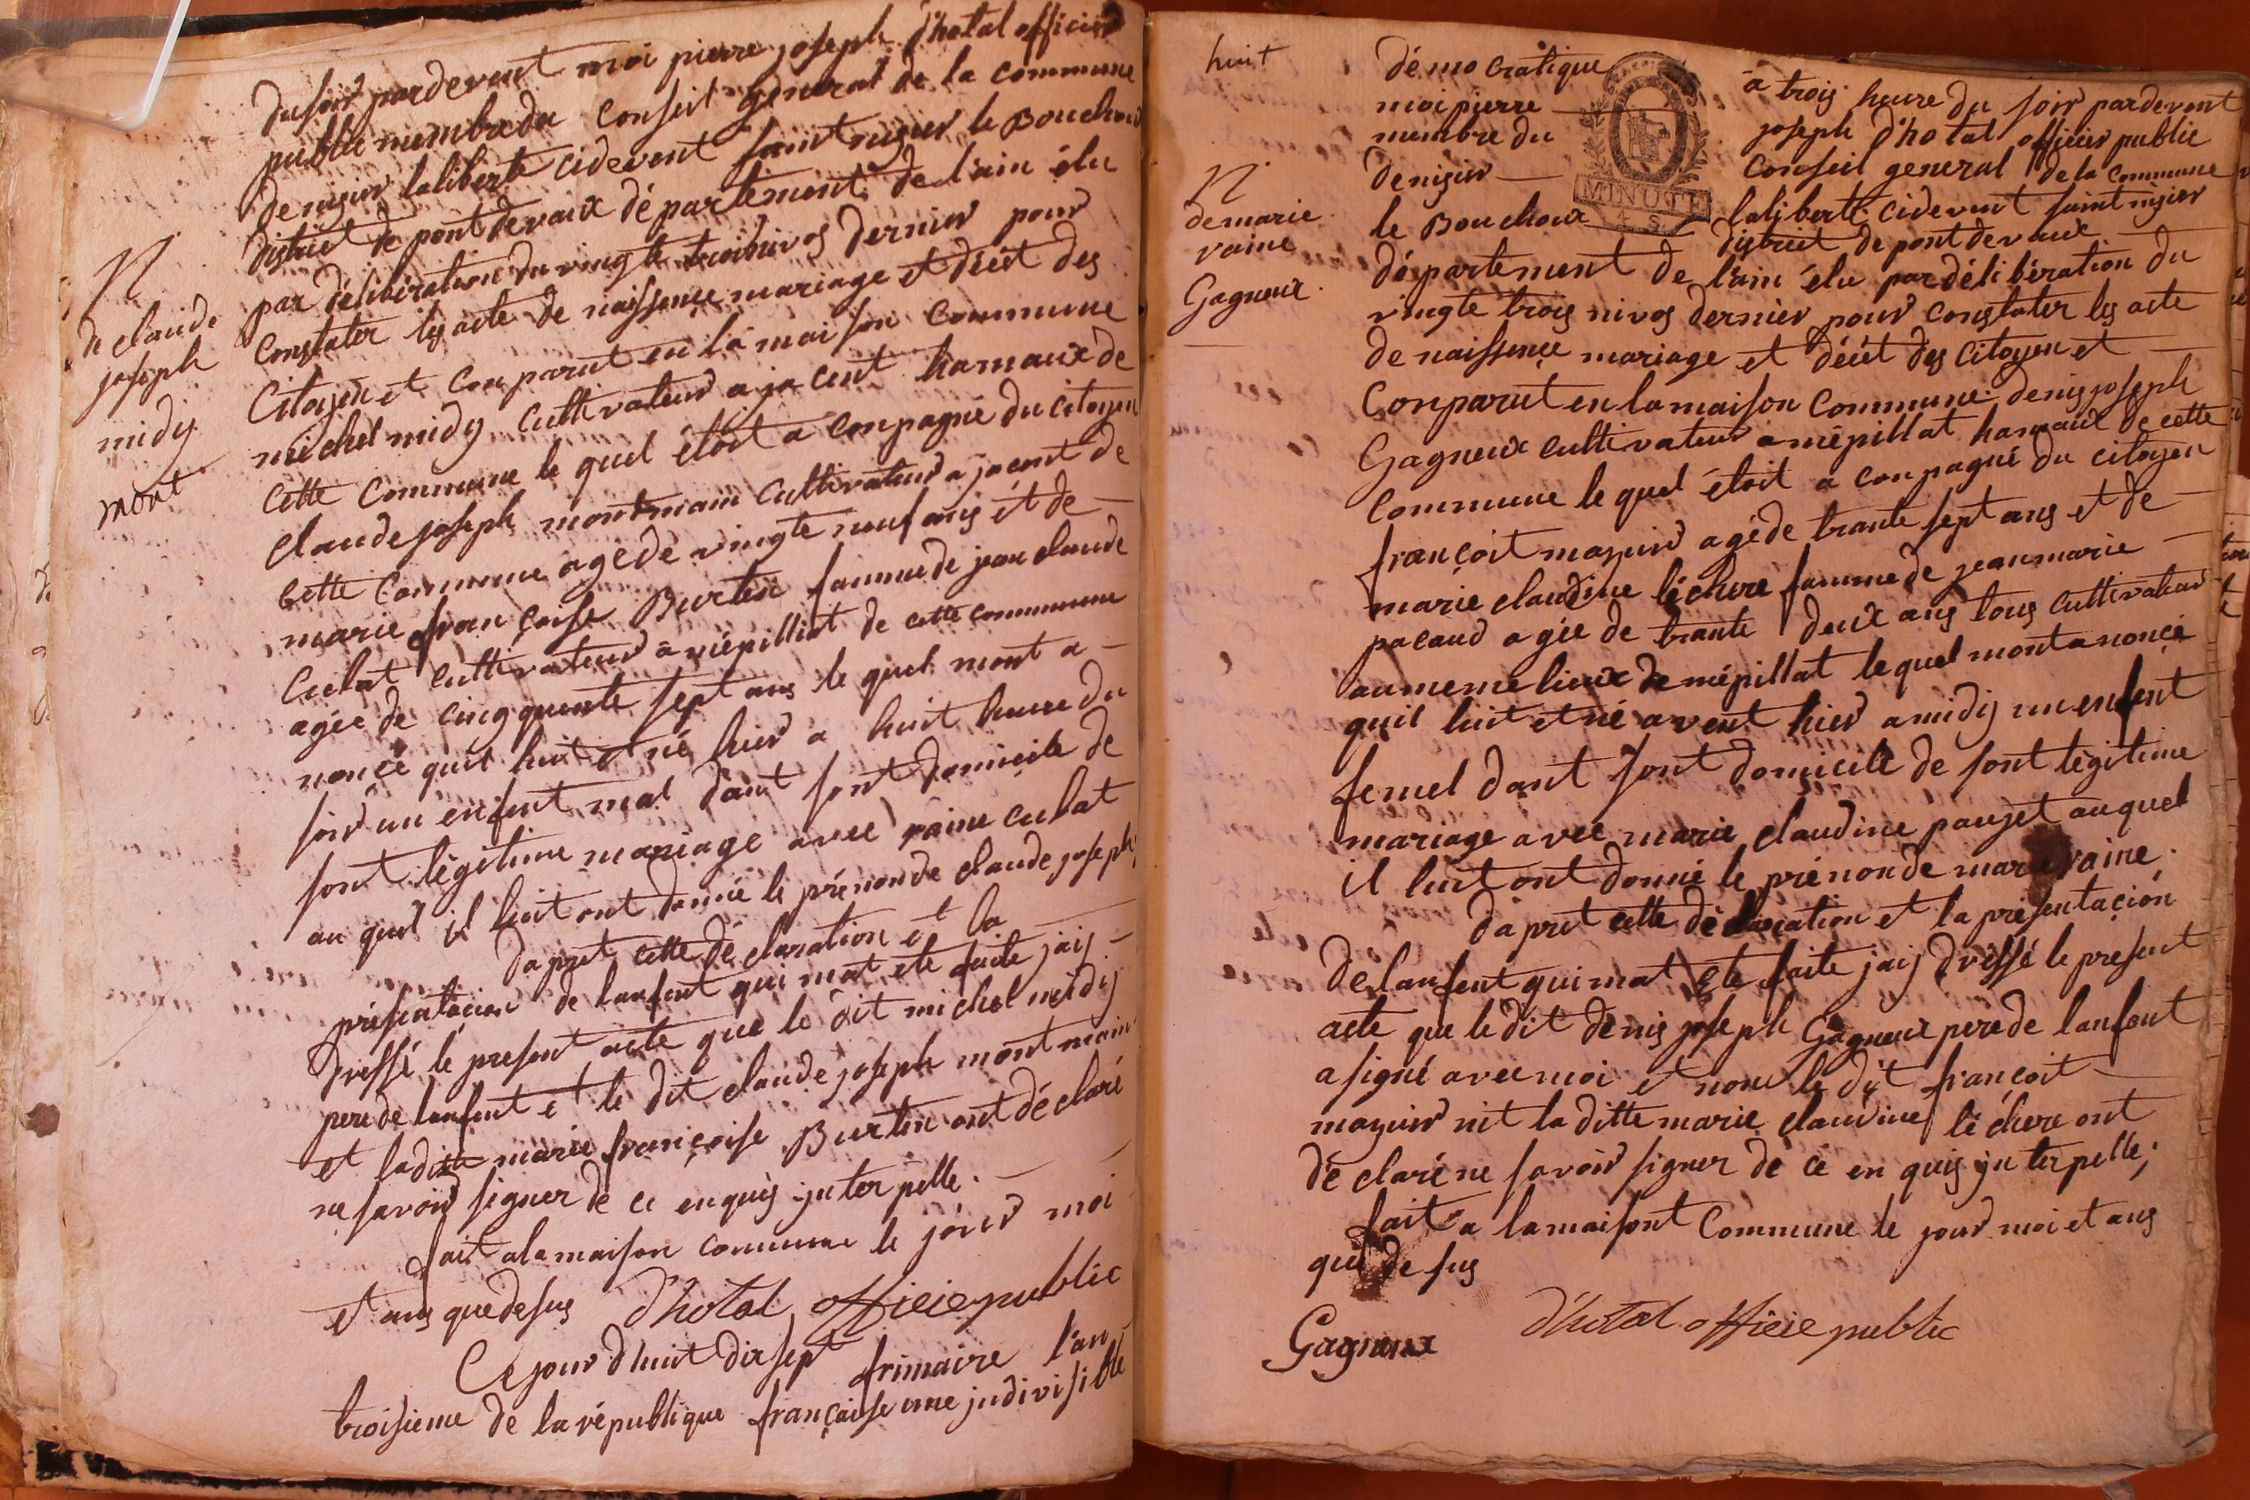 du soir pardevent moi pierre joseph d'hotal officier
public membre du conseil general de la commune
de nizier laliberté cidevent saint nizier le Bouchoux
district de pont de vaux département de l'ain élu
par délibération du vingte trois nivos dernier pour
constater les acte de naissence mariage et décét des
Citoyen et conparut en la maison commune
michel midy cultivateur a jacent hamaux de
cette commune le quel étoit a conpagné du citoyen
claude joseph montmain cultivateur a jacent de
cette commune agé de vingte neuf ans et de
marie françoise Burtin famme de jean claude
Culat cultivateur à mépilliat de cette commune
agée de cinqquente sept ans le quel mont a
noncé quil luit et né hier a huit heure du
soir un enfent mal dant sont domicile de
sont légitime mariage avec raine culat
au quel il luit ont donné le prénon de claude joseph
N
de claude
joseph
midy
mort
dapret cette déclaration et la
présentacion de lanfent qui mat eté faite jaij
dressé le present acte que le dit michel midy
pere de lanfent et le dit claude joseph montmain
et la ditte marie françoise Burtin ont déclaré
ne savoir signer de ce enquis interpellé.
fait a la maison commune le jour moi
et ans que desus d'hotal officie public
Ce jour d'huit dixsept frimaire l'an
troisieme de la république française une jndivisible
huit
démocratique à trois heure du soir pardevent
moi pierre joseph d'hotal officier public
membre du conseil general de la commune
de nizier laliberté cidevent saint nizier
le Bouchoux district de pont de vaux
MINUTE
4 S
N
de marie
raine
Gagneux.
département de l'ain élu par délibération du
vingte trois nivos dernier pour constater les acte
de naissence mariage et décét des citoyen et
Conparut en la maison commune denis joseph
Gagneux cultivateur a mépillat hamaux de cette
commune le quel étoit a conpagné du citoyen
françoit mazuir agé de trante sept ans et de
marie claudine léchere famme de jean marie
pacaud agée de trante deux ans tous cultivateur
au meme lieux de mépillat le quel mont a noncé
quil luit et né avent hier a midy un enfent
femel dant sont domicile de sont légitime
mariage avec marie claudine paujet au quel
il luit ont donné le prénon de marie raine.
daprét cette déclaration et la présentacion
de lanfent qui mat eté faite jaij dressé le present
acte que le dit denis joseph Gagneux pere de lanfent
a signé avec moi et non le dit françoit
mazuir nit la ditte marie claudine léchere ont
déclaré ne savoir signer de ce en quis jnterpellé;
fait a la maisont commune le jour moi et ans
que de sus
Gagneux d'hotal officie public